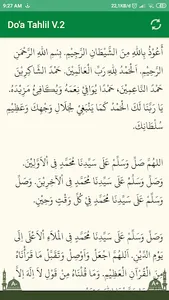 9:27 AM
Do'a Tahlil V.2
أَعُوْذُ بِاللهِ مِنَ الشَّيْطَانِ الرَّجِيْمِ. بِسْمِ اللهِ الرَّحْمَنِ
الرَّحِيْمِ. اَلْحَمْدُ لِلّٰهِ رَبِّ الْعَالَمِيْنَ. حَمْدَ الشَّاكِرِيْنَ
حَمْدَ النَّاعِمِيْنَ، حَمْدًا يُوَافِيْ نِعَمَهُ وَيُكَافِئُ مَزِيْدَهُ.
يَا رَبَّنَا لَكَ الْحَمْدُ كَمَا يَنْبَغِيْ لِجَلَالِ وَجْهِكَ وَعَظِيْمِ
سُلْطَانِكَ.
اَللهُمَّ صَلِّ وَسَلِّمْ عَلَى سَيِّدِنَا مُحَمَّدٍ فِي الْأَوَّلِيْنَ.
وَصَلِّ وَسَلِّمْ عَلَى سَيِّدِنَا مُحَمَّدٍ فِي الْآخِرِيْنَ. وَصَلِّ
وَسَلِّمْ عَلَى سَيِّدِنَا مُحَمَّدٍ فِيْ كُلِّ وَقْتٍ وَحِيْنٍ.
وَصَلِّ وَسَلِّمْ عَلَى سَيِّدِنَا مُحَمَّدٍ فِي الْمَلَإِ الْأَعْلَى إِلَى
يَوْمِ الدِّيْنِ. اَللهُمَّ اجْعَلْ وَأَوْصِلْ وَتَقَبَّلْ مَا قَرَأْنَاهُ
مِنَ الْقُرْآنِ الْعَظِيْمِ. وَمَا قُلْنَاهُ مِنْ قَوْلِ لَا إِلَهَ إِلَّا